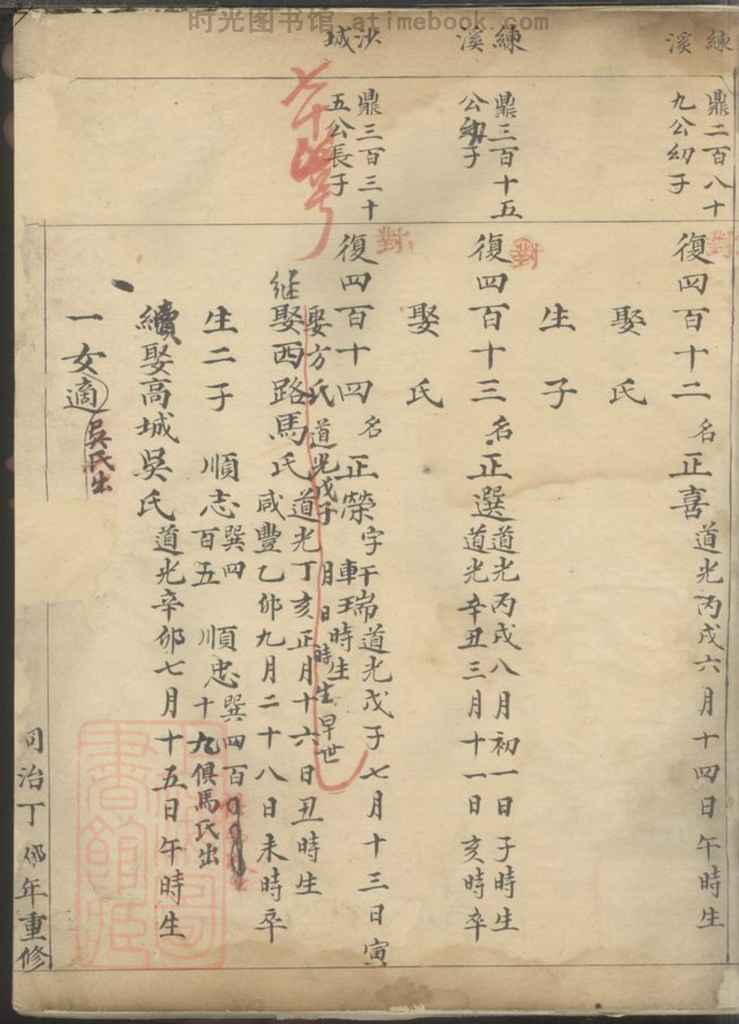 时光图书馆 atimebook.com
練溪
鼎二百八十
九公幼子
對
復四百十二
名正喜
道光丙戌六月十四日午時生
娶氏
生子
練溪
鼎三百十五
公幼子
對
復四百十三
名正選
道光丙戌八月初一日子時生
道光辛丑三月十一日亥時卒
娶氏
沙城
鼎三百三十
五公長子
對
復四百十四
名正榮
字于瑞道光戊子七月十三日寅
時生
娶方氏道光戊子 月 日 時生早世
继娶西路馬氏
道光丁亥正月十六日丑時生
咸豐乙卯九月二十八日未時卒
生二子
順志巽四百五
順忠巽四百十九俱馬氏出
續娶高城吳氏
道光辛卯七月十五日午時生
一女適
吳氏出
同治丁卯年重修